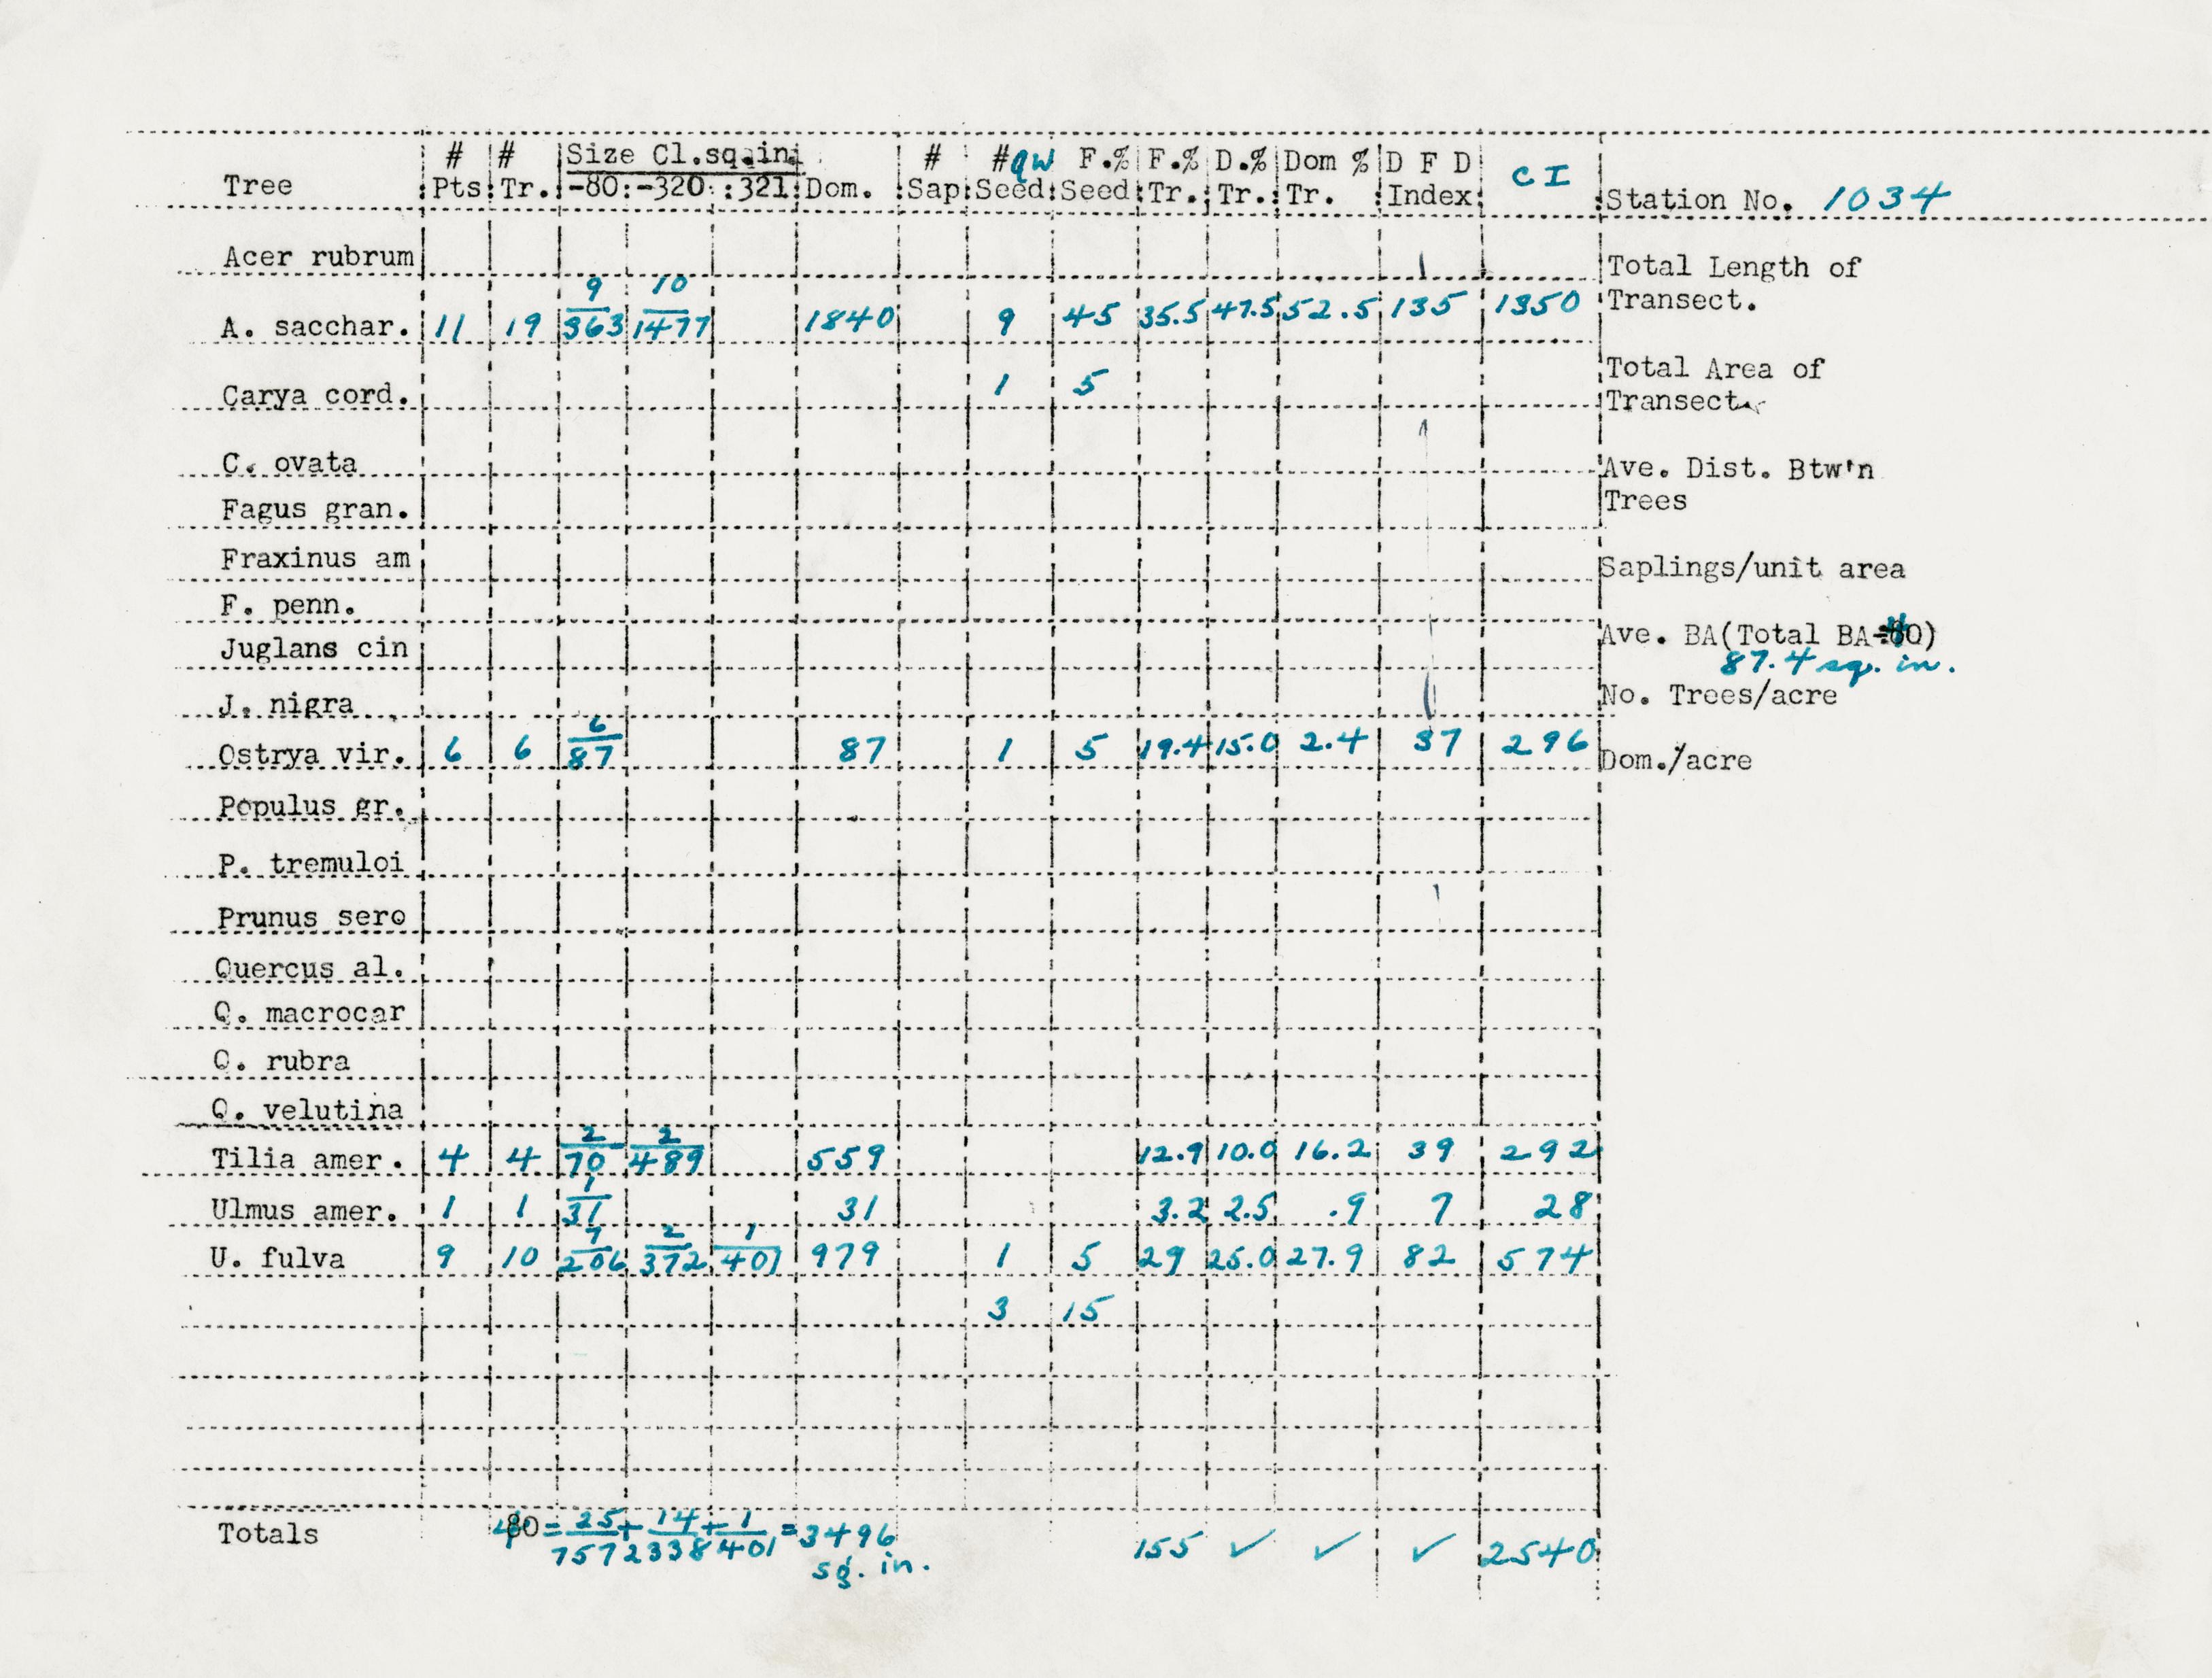 # # Size Cl.sq.in. # #QW F.% F.% D.% Dom % D F D CI
Tree Pts Tr. -80:-320::321: Dom. Sap Seed Seed Tr. Tr. Tr. Index Station No. 1034
Acer rubrum Total Length of
9 10
A. sacchar. 11 19 363 1477 1840 9 45 35.5 47.5 52.5 135 1350 Transect.
Total Area of
Carya cord. 1 5 Transect.
C. ovata Ave. Dist. Btw'n
Fagus gran. Trees
Fraxinus am Saplings/unit area
F. penn.
Juglans cin Ave. BA(Total BA÷80)
87.4 sq. in.
J. nigra No. Trees/acre
6
Ostrya vir. 6 6 87 87 1 5 19.4 15.0 2.4 37 296 Dom./acre
Populus gr.
P. tremuloi
Prunus sero
Quercus al.
Q. macrocar
Q. rubra
Q. velutina
2 2
Tilia amer. 4 4 70 489 559 12.9 10.0 16.2 39 292
1
Ulmus amer. 1 1 31 31 3.2 2.5 .9 7 28
7 2 1
U. fulva 9 10 206 372 401 979 1 5 29 25.0 27.9 82 574
3 15
Totals 80 = 25 + 14 + 1 = 3496
757 2338 401 sq. in. 155 ✓ ✓ ✓ 2540